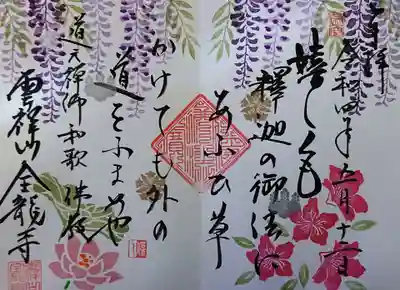 奉拝
令和四年五月十二日
嬉しくも
釋迦の御法に
あふひ草
かけても外の
道をふまめや
道元禅師 和歌
雲祥山金龍寺